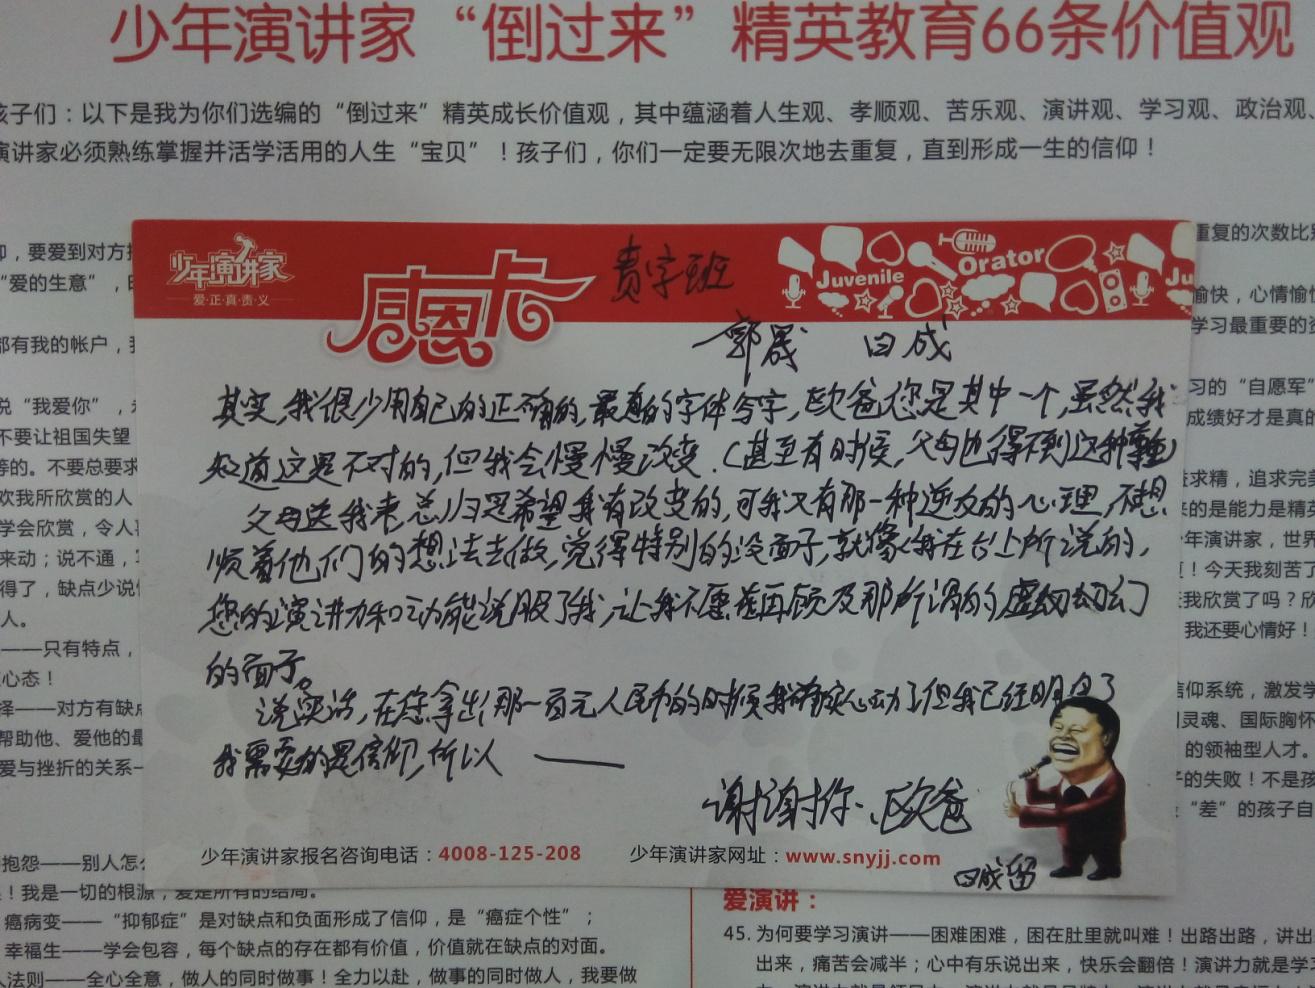 少年演讲家“倒过来”精英教育66条价值观
孩子们：以下是我为你们选编的“倒过来”精英成长价值观，其中蕴涵着人生观、孝顺观、苦乐观、演讲观、学习观、政治观、
演讲家必须熟练掌握并活学活用的人生“宝贝”！孩子们，你们一定要无限次地去重复，直到形成一生的信仰！
少年演讲家
爱·正·真·责·义
感恩卡
责字班
Juvenile
Orator
Ju
郭晟 日成
其实,我很少用自己的正确的,最真的字体写字,欧爸您是其中一个,虽然我
知道这是不对的,但我会慢慢改变.(甚至有时候,父母也得不到这种
父母送我来总归是希望我有改变的,可我又有那一种逆反的心理,不想
顺着他们的想法去做,觉得特别的没面子,就像我在台上所说的,
您的演讲力和口才能说服了我,让我不愿意再顾及那所谓的虚幻
的面子。
说实话,在您拿出那一百元人民币的时候我确实心动了但我已经明白了
我需要的是信仰,所以 ——
谢谢你、欧爸
日成留
少年演讲家报名咨询电话：4008-125-208 少年演讲家网址：www.snyjj.com
仰，要爱到对方
“爱的生意”，
都有我的帐户，
说“我爱你”，
不要让祖国失望
等的。不要总要求
欢我所欣赏的人
学会欣赏，令人
来动；说不通，
得了，缺点少说
人。
——只有特点，
心态！
择——对方有缺
帮助他、爱他的最
爱与挫折的关系—
抱怨——别人怎
！我是一切的根源，爱是所有的结局。
癌病变——“抑郁症”是对缺点和负面形成了信仰，是“癌症个性”；
幸福生——学会包容，每个缺点的存在都有价值，价值就在缺点的对面。
人法则——全心全意，做人的同时做事！全力以赴，做事的同时做人，我要做
重复的次数比
愉快，心情愉
学习最重要的资
习的“自愿军”
成绩好才是真的
求精，追求完美
来的是能力是精英
年演讲家，世界
！今天我刻苦了
我欣赏了吗？欣
我还要心情好！
信仰系统，激发学
灵魂、国际胸怀
的领袖型人才。
的失败！不是孩
“差”的孩子自
爱演讲：
45. 为何要学习演讲——困难困难，困在肚里就叫难！出路出路，讲出
出来，痛苦会减半；心中有乐说出来，快乐会翻倍！演讲力就是学习